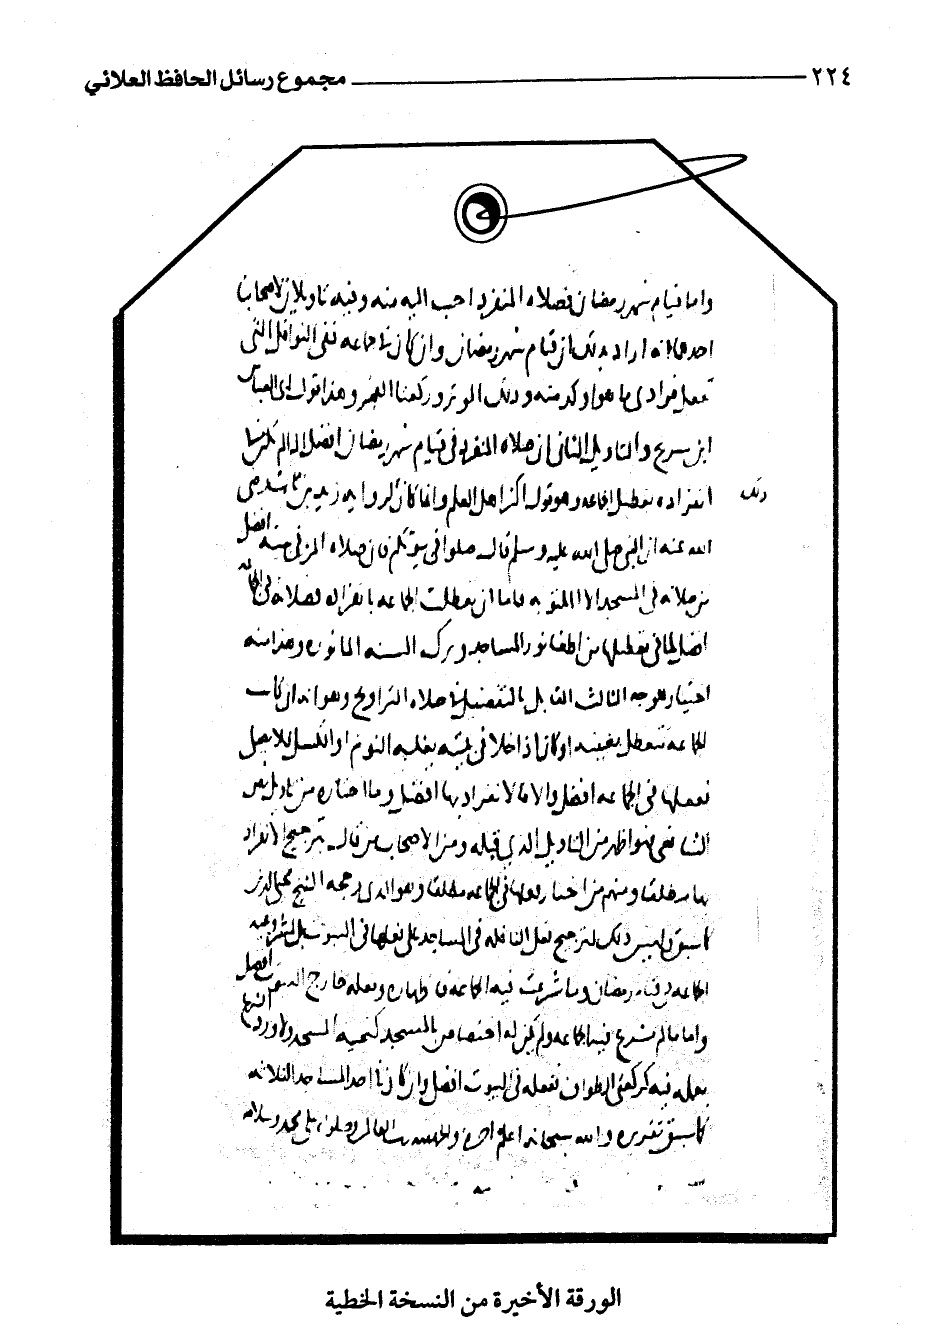 ٢٢٤ مجموع رسائل الحافظ العلائي
واما قيام شهر رمضان فصلاه المنفرد احب اليه منه وفيه تاويلان لاصحابنا
احدهما انه اراد بذلك ان قيام شهر رمضان وان كان في جماعه ففي النوافل التي
تفعل فرادى ما هو اوكد منه وذلك الوتر وركعتا الفجر وهذا قول ابي العباس
ابن سريج والتاويل الثاني ان صلاه المنفرد في قيام شهر رمضان افضل اذا لم يكن في
ذلك
انفراده تعطيل الجماعه وهو قول اكثر اهل العلم وانما كان لروايه زيد بن ثابت رضي
الله عنه ان النبي صلى الله عليه وسلم قال صلوا في بيوتكم فان صلاه المرء في بيته افضل
من صلاته في المسجد الا المكتوبه فاما ان تعطلت الجماعه بانفراده فصلاته في الجماعه
افضل لما في تعطيلها من اطفا نور المساجد وترك السنه الماثوره وهذا منه
اختيار للوجه الثالث القايل بالتفصيل في صلاه التراويح وهو انه ان كانت
الجماعه تتعطل بغيبته او كان اذا خلا في بيته يغلبه النوم او الكسل فلا يصل
ففعلها في الجماعه افضل والا فالانفراد بها افضل وما اختاره من تاويل نص
الشافعي فهو اظهر من التاويل الذي قبله ومن الاصحاب من قال بترجيح الانفراد
بها مطلقا ومنهم من اختار فعلها في الجماعه مطلقا وهو الذي رجحه الشيخ محيي الدين
كما سبق وليس ذلك لترجيح فعل النافله في المساجد على فعلها في البيوت بل لمشروعيه
الجماعه في قيام رمضان وما شرعت فيه الجماعه فاظهاره وفعله خارج البيوت افضل
واما ما لم يشرع فيه الجماعه ولم يكن له اختصاص بالمسجد كتحيه المسجد ولا ورد انه
يفعله فيه كركعتي الطواف ففعله في البيوت افضل وان كان في احد المساجد الثلاثه
كما سبق تقريره والله سبحانه اعلم اخره والحمد لله رب العالمين وصلواته على محمد وسلامه
الورقة الأخيرة من النسخة الخطية